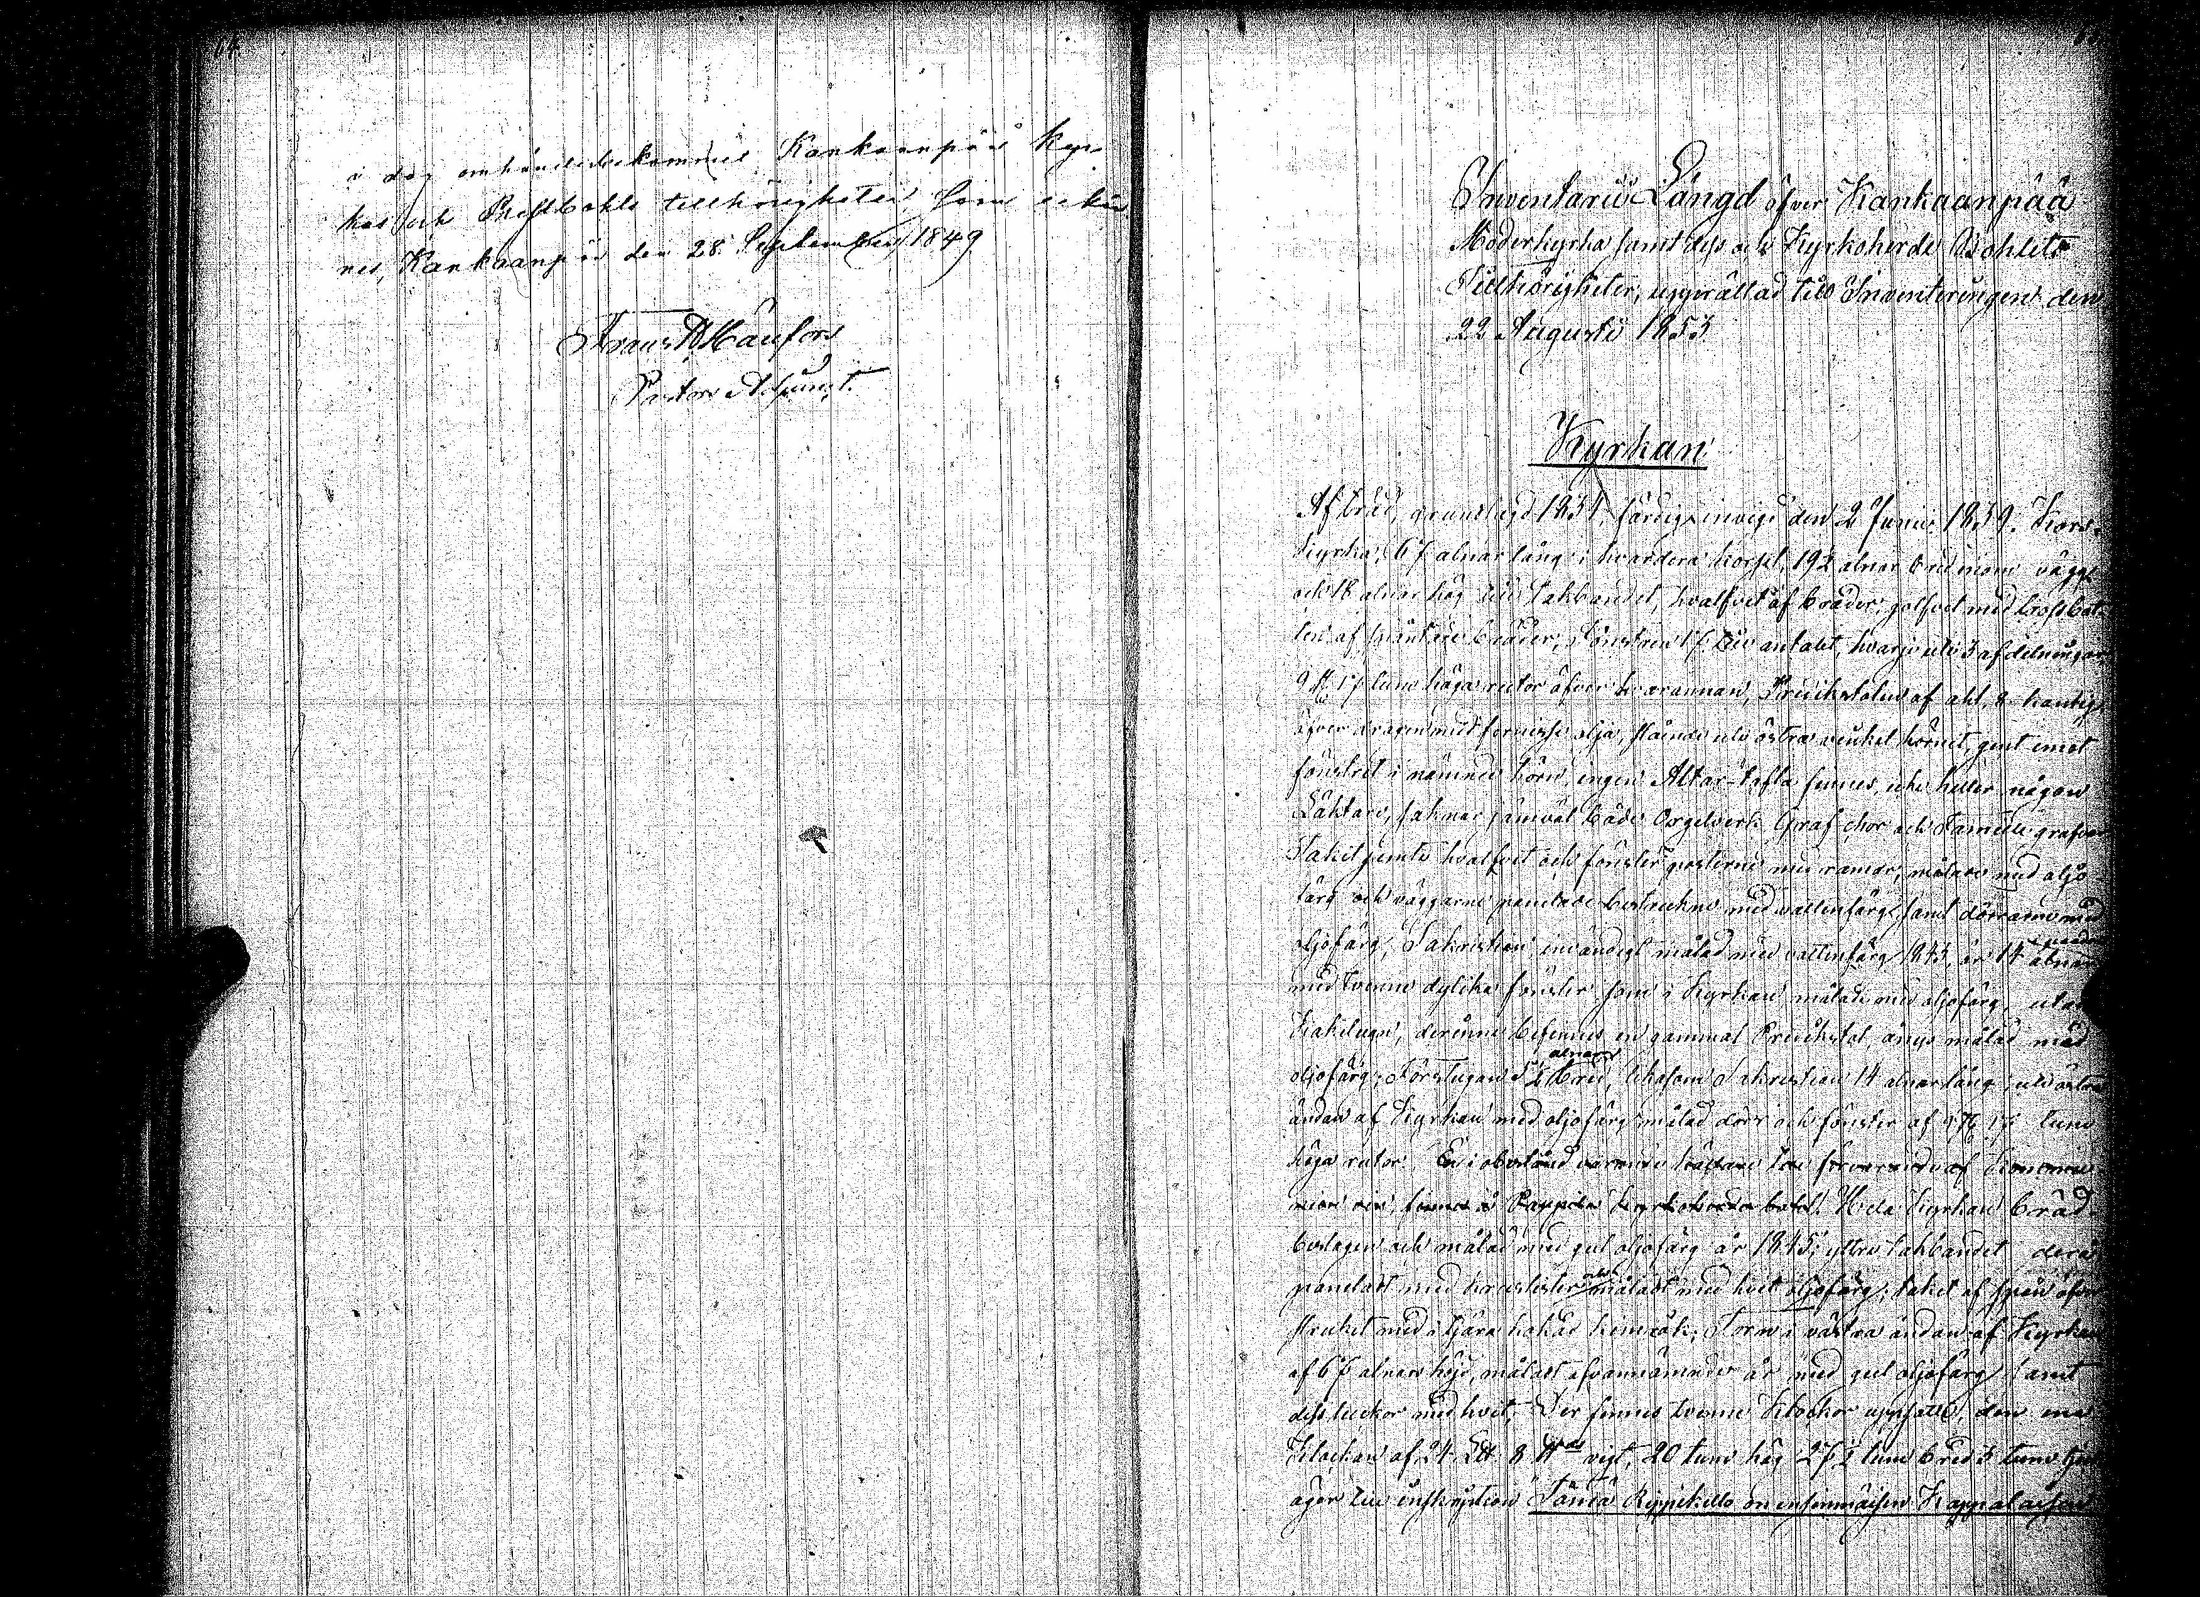 64.
i dag omhänderbekommit Kankaanpää Kyr-
kas och Prestbohls tillhörigheter, som erkän-
nes, Kankaanpää den 28. September 1849
Frans
Pastors Adjunct.
Inventarii Längd öfver Kankaanpää
Moderkyrka samt dess och Kyrkoherde Bohlets
Tillhörigheter, upprättad till Inventeringen den
22 Augusti 1853
Kyrkan
Af träd, grundlagd 1834, färdig invigd den 2 Junii 1839. Kors-
kyrka, 67 alnar lång i hvardera korset, 19½ alnar bred inom vägg.
och 18 alnar hög till takbandet, hvalfvet af bräder, golfvet med
af bräder, Fönstren 17 till antalet, hvarje uti 3 afdelningar
9 17 tum höga rutor öfver hvarannan, Predikstolen af ahl, 8 kantig,
öfverdragen med fernissa olja, stående uti östra vinkel hörnet, gent emot
fönstret i nämnde hörn, ingen Altar-tafla finnes, icke heller någon
Läktare, saknar jämväl både Orgelverk, Graf chor och Familie grafvar
Taket jemte hvalfvet och fönster posterne med ramar, målade med oljo-
färg och väggarne panelade bestrukne med vattenfärg, samt dörrarne med
oljofärg, Sakristian, invändigt målad med vattenfärg 1843, är 14 alnar
med tvenne dylika fönster som i Kyrkan målade med oljofärg, utan
Kakelugn, derinne befinnes en gammal Predikstol, ånyo målad med
oljofärg; Förstugan alnar bred, likasom Sakristian 14 alnar lång, uti östra
ändan af Kyrkan med oljofärg målad dörr och fönster af 9 17 tum
höga rutor. En i obestånd varande
Kyrkoherde bohl. Hela Kyrkan bräd-
beslagen och målad med gul oljofärg år 1845, yttre takbandet derå
paneladt med måladt med hvit oljofärg; taket af spån öfver-
struket med i tjära kokad kimrök; Torn i västra ändan af Kyrkan
af 67 alnars höjd, måladt ofvannämnde år med gul oljofärg samt
dess luckor med hvit, Der finnes tvenne Klockor uppsatte, den ena
Klockan af 24 L℔ 8 ℔ vigt, 20 tum hög 27½ tum bred 3 tum tjock
äger till inskription Tämä Rippikello on ensimmäisen Kappalaisen